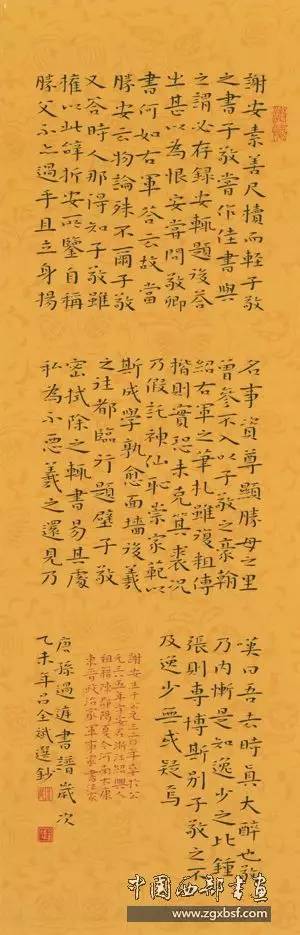 謝安素善尺牘而輕子敬
之書子敬嘗作佳書與
之謂必存錄安輒題後荅
之甚以為恨安嘗問敬卿
書何如右軍荅云故當
勝安云物論殊不爾子敬
又荅時人那得知子敬雖
權以此辭折安所鑒自稱
勝父不亦過乎且立身揚
名事資尊顯勝母之里
曾參不入以子敬之豪翰
紹右軍之筆札雖復粗傳
楷則實恐未克箕裘況
乃假託神仙恥崇家範以
斯成學孰愈面墻後羲
之往都臨行題壁子敬
密拭除之輒書易其處
私為不惡羲之還見乃
嘆曰吾去時真大醉也敬
乃內慚是知逸少之比鍾
張則專博斯別子敬之不
及逸少無或疑焉
謝安生于公元三二〇年卒於公
元三八五年字安石浙江紹興人
祖籍陳郡陽夏今河南太康
東晉政治家軍事家書法家
唐孫過庭書譜歲次
乙未年呂全斌選鈔
中国西部書画
www.zgxbsf.com